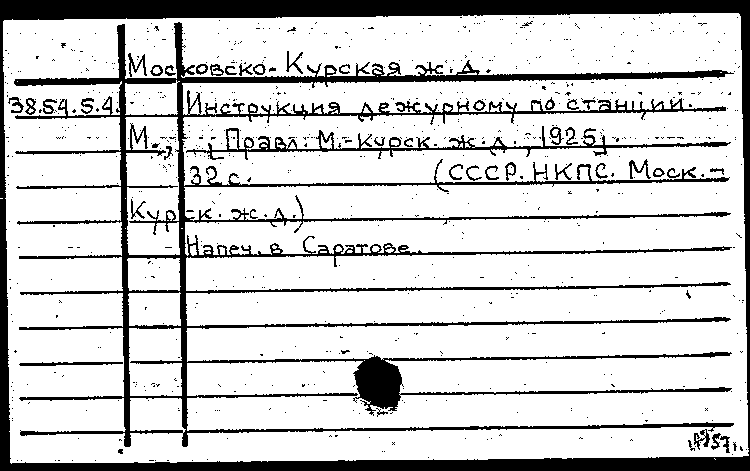 Московско-Курская ж.д.
38.54.5.4. Инструкция дежурному по станции.
М., [Правл. М.-Курск. ж.д., 1925].
32 с. (СССР. НКПС. Моск.-
Курск. ж.д.)
Напеч. в Саратове.